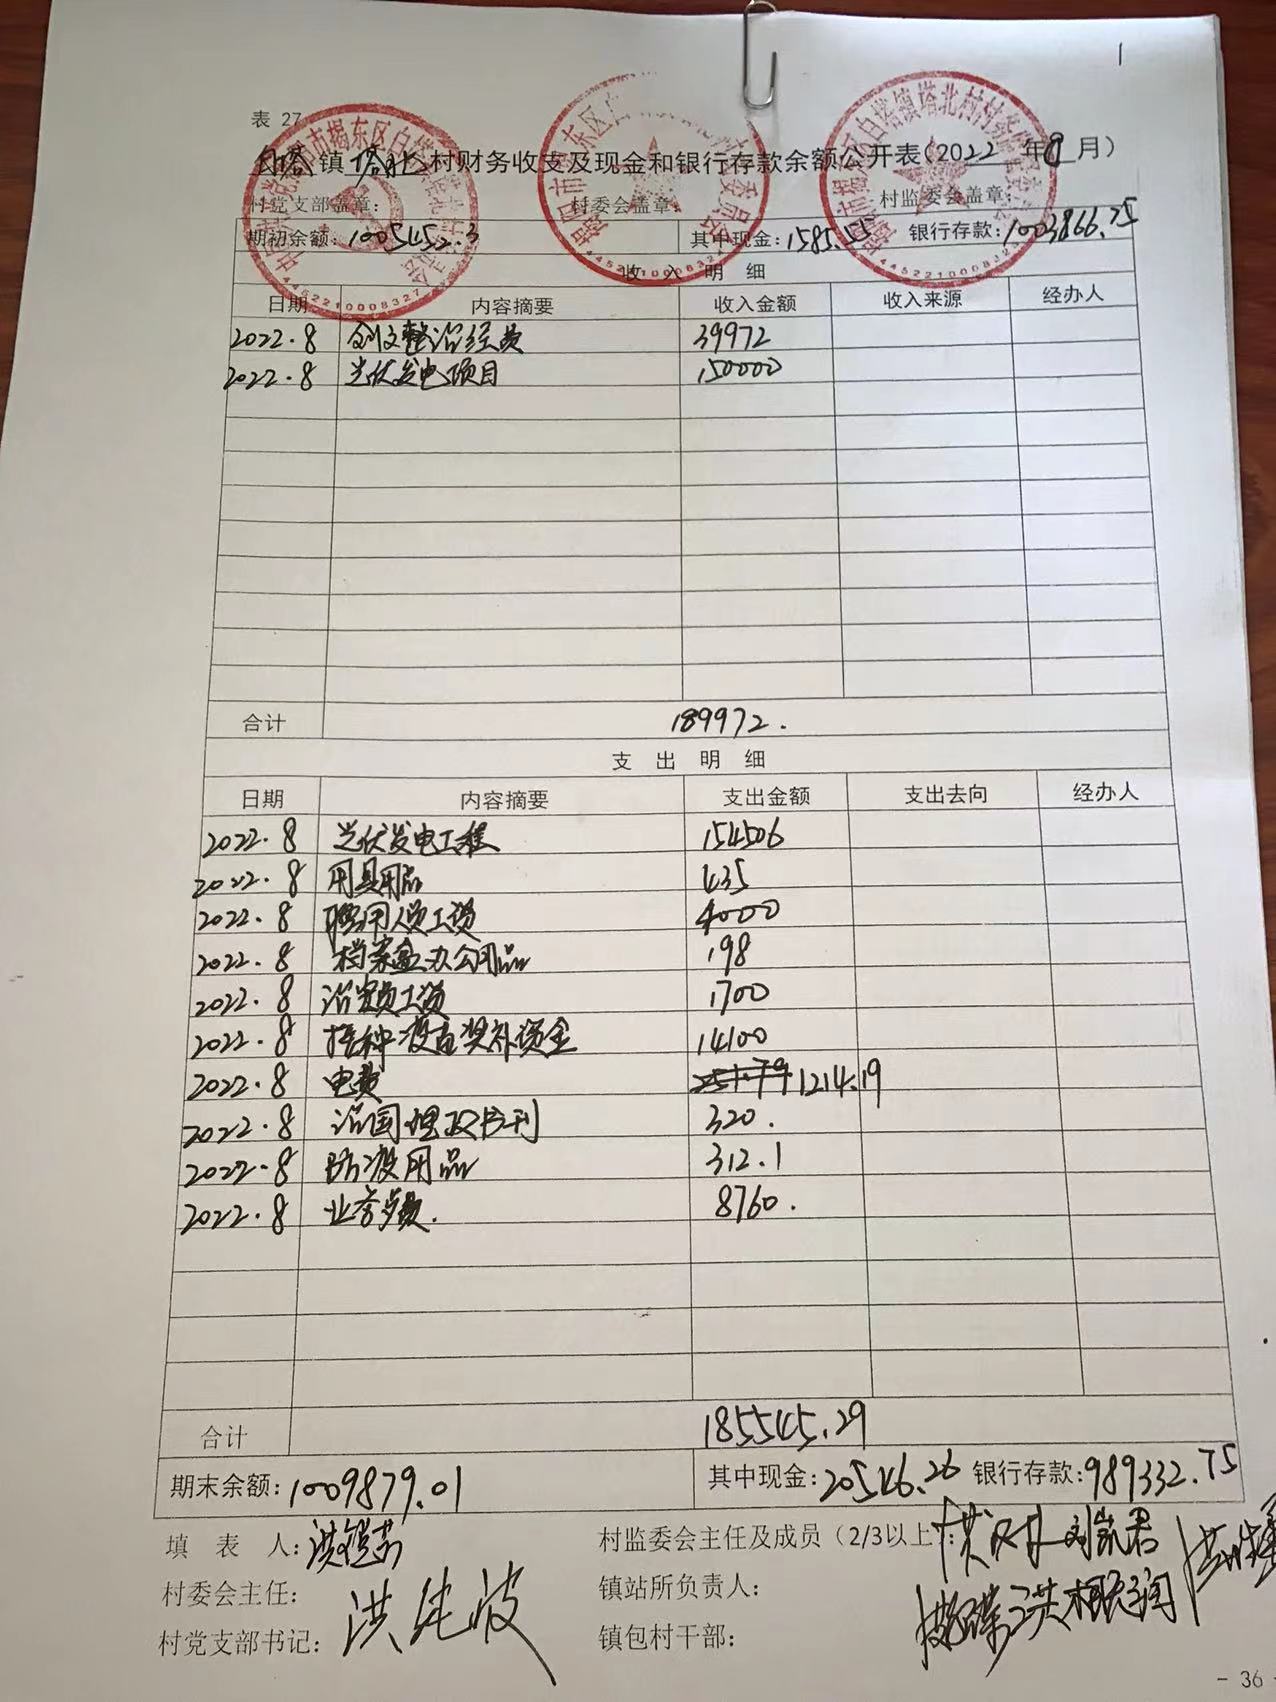 1
表 27
白塔镇 塔北 村财务收支及现金和银行存款余额公开表(2022 年8月)
村党支部盖章: 村委会盖章: 村监委会盖章:
期初余额:1005452.3 其中现金:1585.55 银行存款:1003866.75
收 入 明 细
日期 内容摘要 收入金额 收入来源 经办人
2022.8 创文整治经费 39972
2022.8 光伏发电项目 150000
合计 189972.
支 出 明 细
日期 内容摘要 支出金额 支出去向 经办人
2022.8 光伏发电工程 154506
2022.8 用具用品 435
2022.8 聘用人员工资 4000
2022.8 档案盒办公用品 198
2022.8 治安员工资 1700
2022.8 接种疫苗奖补资金 14100
2022.8 电费 1214.19
2022.8 治国理政书刊 320.
2022.8 防疫用品 312.1
2022.8 业务费.  8760.
合计 185545.29
期末余额:1009879.01 其中现金:20546.26 银行存款:989332.75
填 表 人: 村监委会主任及成员(2/3以上): 刘凯君
村委会主任: 镇站所负责人:
村党支部书记: 洪纯波 镇包村干部:
- 36 -
4452210008327